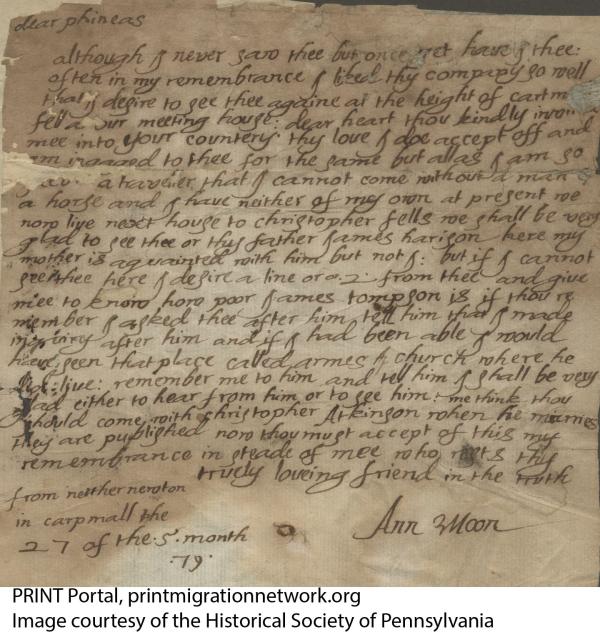 dear phineas
although I never saw thee but once yet have I thee:
often in my remembrance I liked thy company so well
that I desire to see thee againe at the height of cartm
fell a our meeting house: dear heart thou kindly
mee into your countery thy love I doe accept off and
am ingaged to thee for the same but alas I am so
a traveller that I cannot come without a man
a horse and I have neither of my own at present we
now live next house to christopher fells we shall be very
glad to see thee or thy father James harison here my
mother is aquainted with him but not I: but if I cannot
see thee here I desire a line or .2. from thee and give
mee to know how poor James tompson is if thou re
member I asked thee after him tell him that I made
after him and if I had been able I would
have seen that place called armes church where he
live: remember me to him and tell him I shall be very
glad either to hear from him or to see him: me think thou
should come with christopher Atkinson when he marries
they are published now thou must accept of this my
remembrance in steade of mee who rests thy
truely loveing friend in the truth
from neither newton
in carpmall the
27 of the .5. month
.79.
Ann Moon
PRINT Portal, printmigrationnetwork.org
Image courtesy of the Historical Society of Pennsylvania